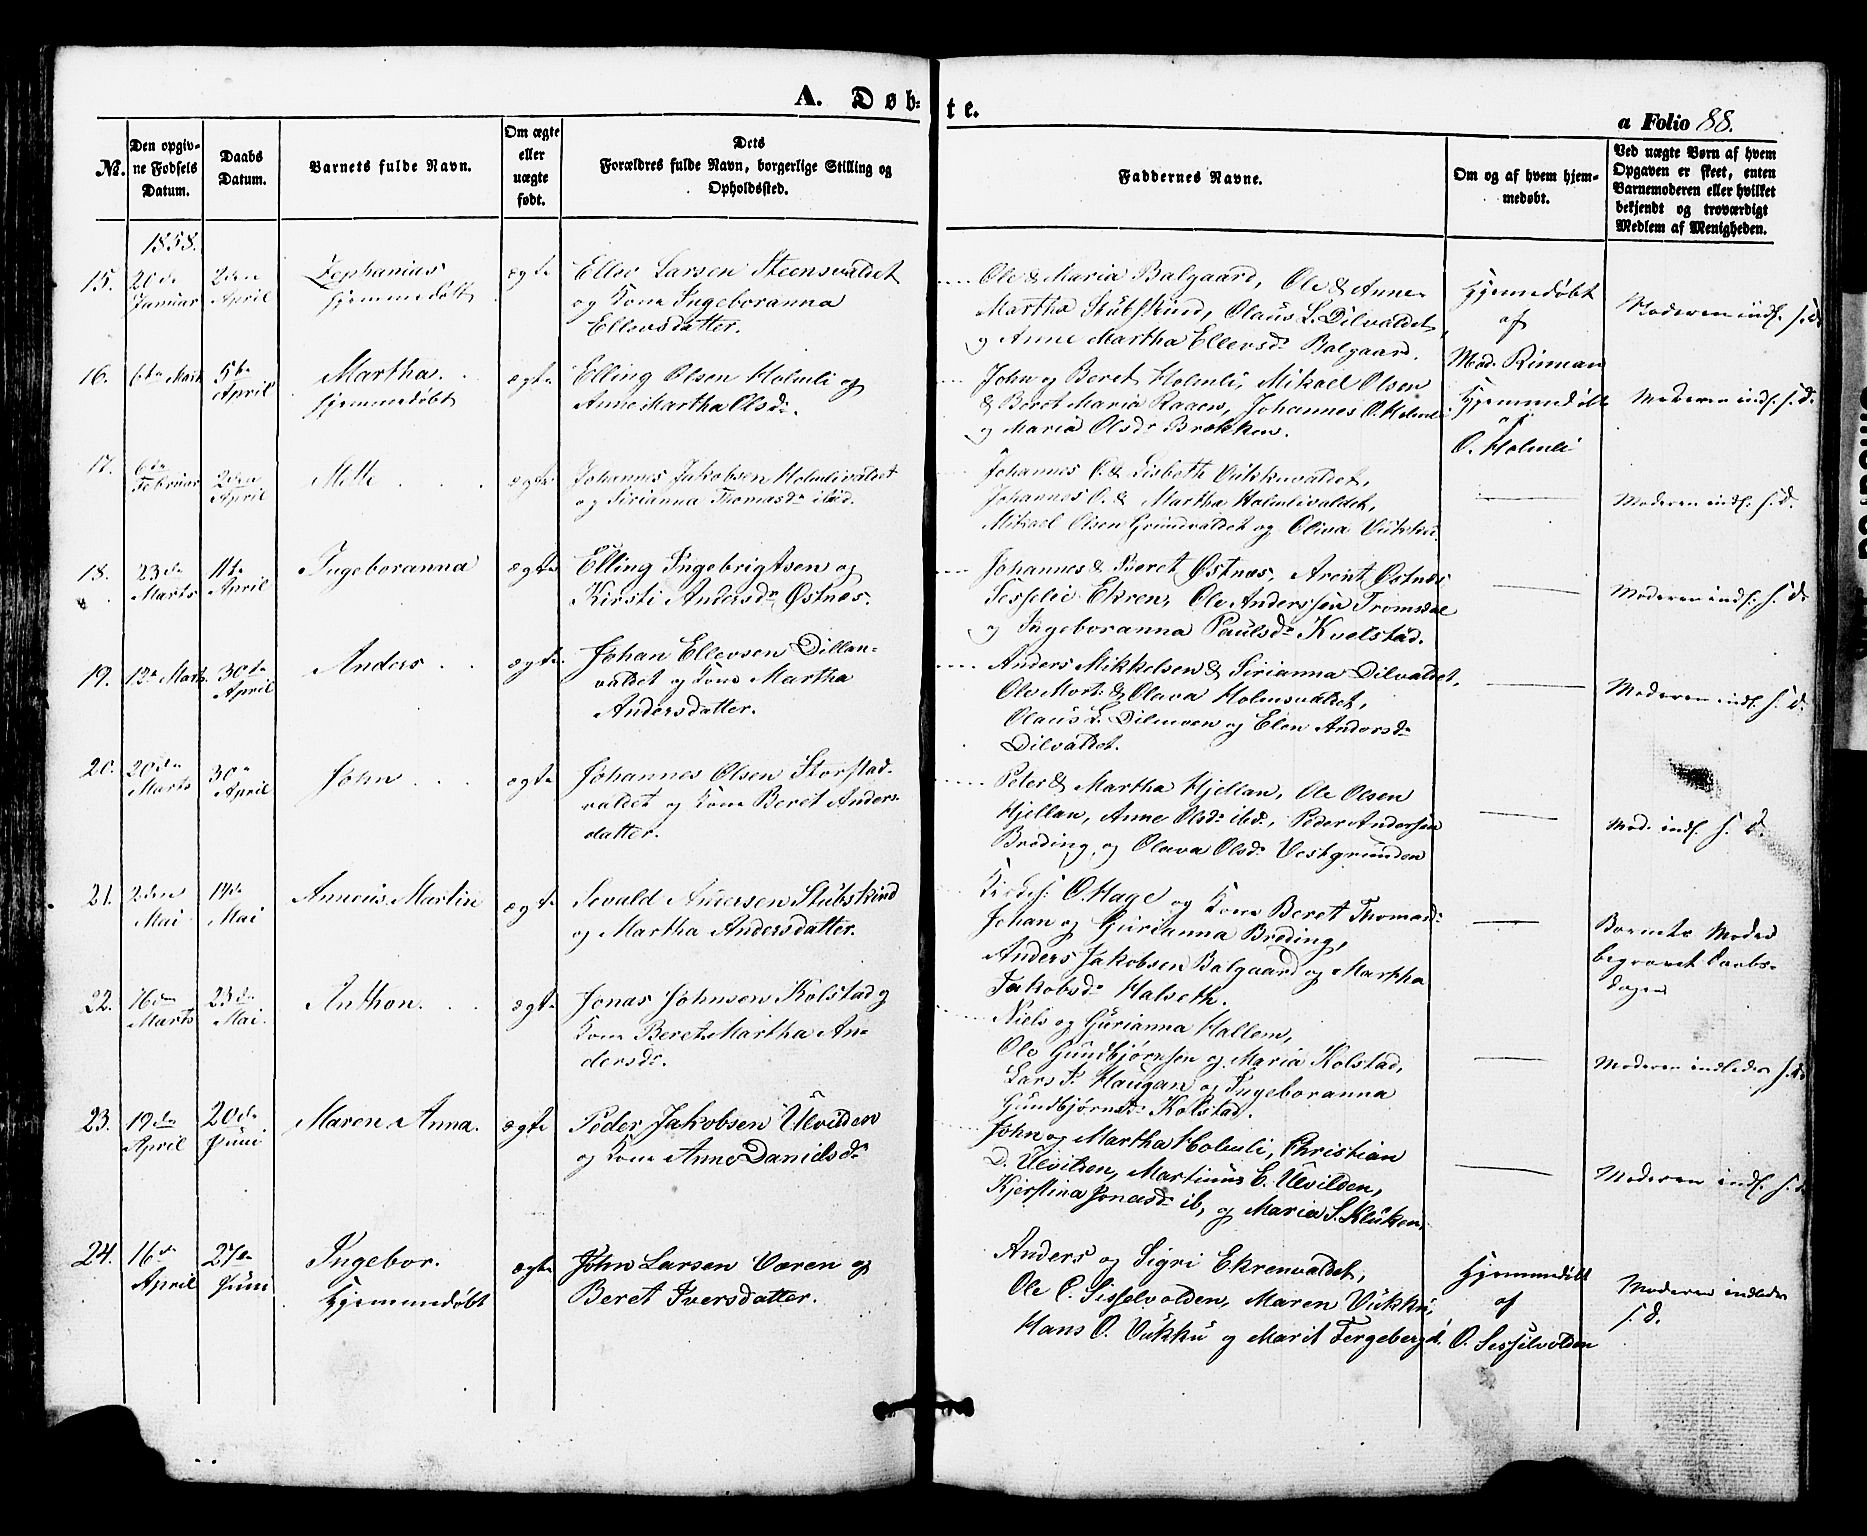 A. Døb-te.
a Folio 88.
No.
Den opgiv-
ne Fødsels
Datum.
Daabs
Datum.
Barnets fulde Navn.
Om ægte
eller
uægte
født.
Dets
Forældres fulde Navn, borgerlige Stilling og
Opholdssted.
Faddernes Navne.
Om og af hvem hjem-
medøbt.
Ved uægte Børn af hvem
Opgaven er skeet, enten
Barnemoderen eller hvilket
bekjendt og troværdigt
Medlem af Menigheden.
1858.
15. 20de
Januar
2den
April
Zephanius
hjemmedøbt
ægte
Ellev Larsen Steensvaldet
og Kone Ingeboranna
Ellevsdatter.
Ole & Maria Balgaard, Ole & Anne
Martha Stubskind, Olaus L. Dilvaldet,
og Anne Martha Ellevsdr Balgaard.
Hjemmedøbt
af
Mad. Rinnan
Moderen indl. s. d.
16. 6te Marts
5te
April
Martha.
hjemmedøbt
ægte
Elling Olsen Holmli og
Anne Martha Olsdr.
John og Beret Holmli, Mikael Olsen
& Beret Maria Raaen, Johannes O. Holmli
og Maria Olsdr Brækken.
Hjemmedøbt
af
O. Holmli
Moderen indl. s. d.
17. 6te
Februar
2den
April
Mette
ægte
Johannes Jakobsen Holmlivaldet
og Sirianna Thomasdr ibid.
Johannes O. & Lisbeth Vukkuvaldet,
Johannes O. & Martha Holmlivaldet,
Mikael Olsen Grundvaldet og Oliva Vukku.
Moderen indl. s. d.
18. 23de
Marts
11te
April
Ingeboranna
ægte
Elling Ingebrigtsen og
Kirsti Andersdr Østnæs.
Johannes & Beret Østnæs, Arent Østnæs
Ekren, Ole Anderssen Tromsdal
og Ingeboranna Paulsdr Kvelstad.
Moderen indl. s. d.
19. 12te Marts
30te
April
Anders
ægte
Johan Ellevsen Dillan-
valdet og Kone Martha
Andersdatter.
Anders Mikkelsen & Sirianna Dilvaldet,
Ole Mort. & Olava Holmsvaldet,
Olaus L. Dilmoen og Elen Andersdr
Dilvaldet.
Moderen indl. s. d.
20. 20de
Marts
30te
April
John
ægte
Johannes Olsen Storstad-
valdet og Kone Beret Anders-
datter.
Peter & Martha Hjellan, Ole Olsen
Hjellan, Anne Olsdr ibd., Peder Anderssen
Breding, og Olava Olsdr Vestgrunden
Mod. indl. s. d.
21. 2den
Mai
Mai
Anneus Martin
ægte
Sevald Andersen Stubskind
og Martha Andersdatter.
O. Hage og Kone Beret Thomasdr
Johan og Gurianna Breding,
Anders Jakobsen Balgaard og Martha
Jakobsdr Halseth.
Barnets Moder
begravet Daabs-
dagen
22. 16den
Marts
23de
Mai.
Anthon.
ægte
Jonas Johnsen Kolstad og
Kone Beret Martha An-
dersdr.
Niels og Gurianna Hallem,
Ole Gundbjørnsen og Maria Kolstad,
Lars P. Haugan og Ingeboranna
Gundbjørnsdr Kolstad.
Moderen indledes s. d.
23. 19de
April
20de
Juni
Maren Anna.
ægte
Peder Jakobsen Ulvilden
og Kone Anne Danielsdr
John og Martha Holmli, Christian
D. Ulvilden, Martinus E. Ulvilden,
Kjerstina Jonasdr ib, og Maria S. Kluken.
Moderen indl. s. d.
24. 16de
April
27de
Juni
Ingebor.
Hjemmedøbt
ægte
John Larsen Væren og
Beret Iversdatter.
Anders og Sigri Ekrenvaldet,
Ole O. Sisselvolden, Maren Vukku,
Hans O. Vukku og Marit
Hjemmedøbt
af
O. Sesselvolden
Moderen indledes
s. d.